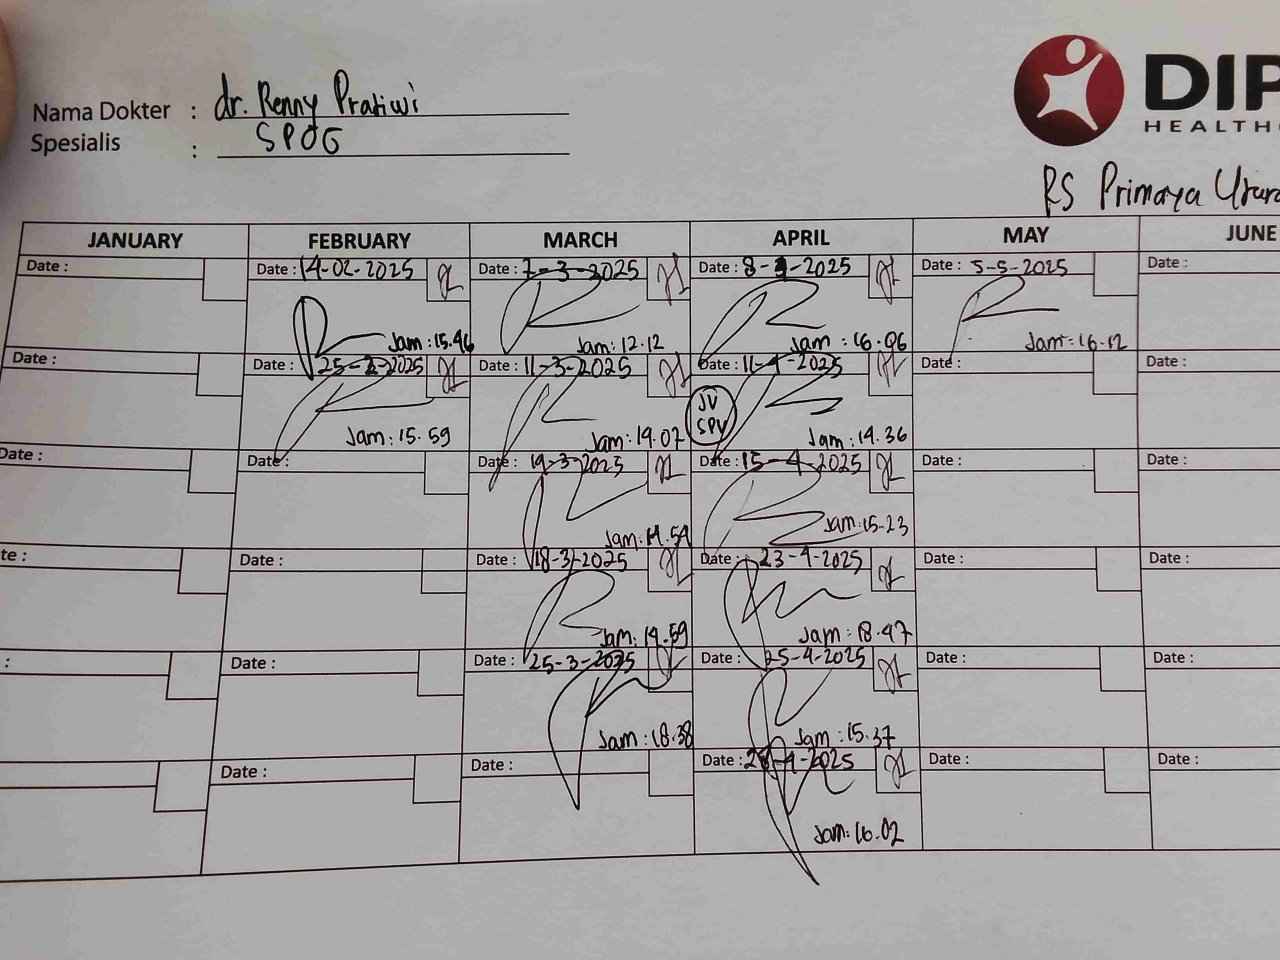 Nama Dokter : dr. Renny Pratiwi
Spesialis : SPOG
DIP
HEALTHC
RS Primaya Utara
JANUARY FEBRUARY MARCH APRIL MAY JUNE
Date : Date : 14-02-2025 Date : 7-3-2025 Date : 8-4-2025 Date : 5-5-2025 Date :
Jam : 15.46 Jam : 12.12 Jam : 16.06 Jam : 16.12
Date : Date : 25-2-2025 Date : 11-3-2025 Date : 11-4-2025 Date : Date :
JV
SPV
Jam : 15.59 Jam : 14.07 Jam : 14.36
Date : Date : Date : 14-3-2025 Date : 15-4-2025 Date : Date :
Jam : 14.54 Jam : 15.23
te : Date : Date : 18-3-2025 Date : 23-4-2025 Date : Date :
Jam : 14.59 Jam : 18.47
: Date : Date : 25-3-2025 Date : 25-4-2025 Date : Date :
Jam : 18.38 Jam : 15.37
Date : Date : Date : 28-4-2025 Date : Date :
Jam : 16.02